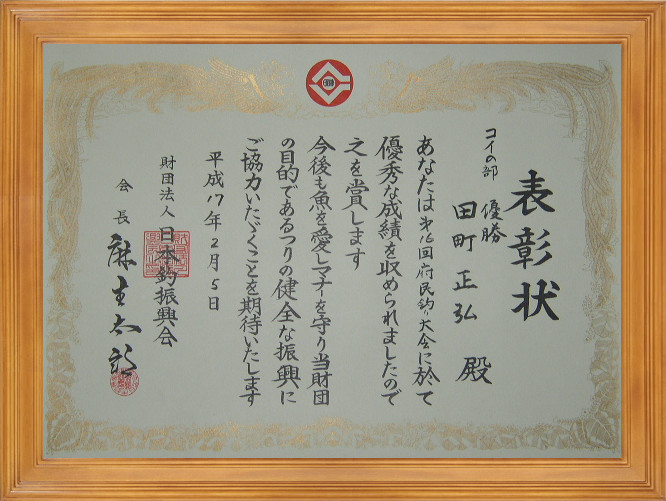 表彰状
コイの部 優勝
田町正弘 殿
あなたは第16回府民釣り大会に於て
優秀な成績を収められましたので
之を賞します
今後も魚を愛しマナーを守り当財団
の目的であるつりの健全な振興に
ご協力いたゞくことを期待いたします
平成17年2月5日
財団法人 日本釣振興会
会長 麻生太郎